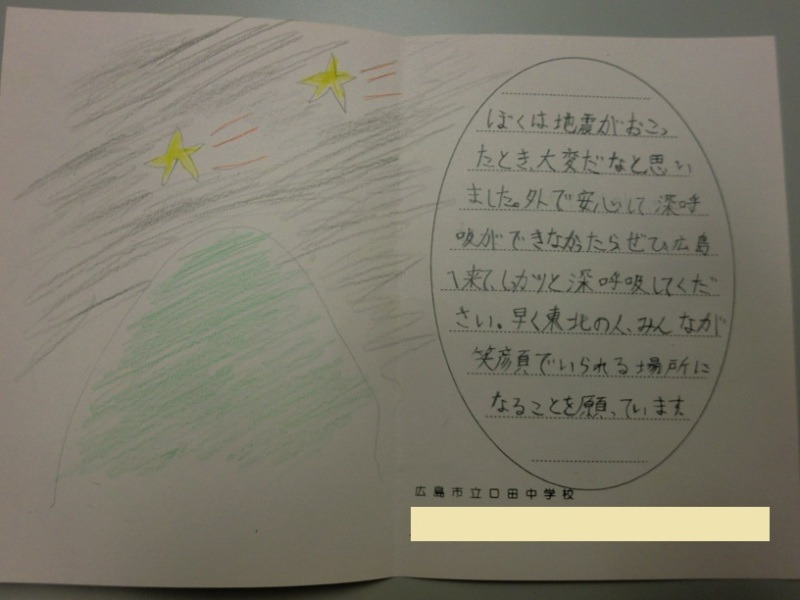 ぼくは地震がおこっ
たとき、大変だなと思い
ました。外で安心して深呼
吸ができなかったらぜひ、広島
へ来て、しっかりと深呼吸してくだ
さい。早く東北の人、みんなが
笑顔でいられる場所に
なることを願っています
広島市立口田中学校